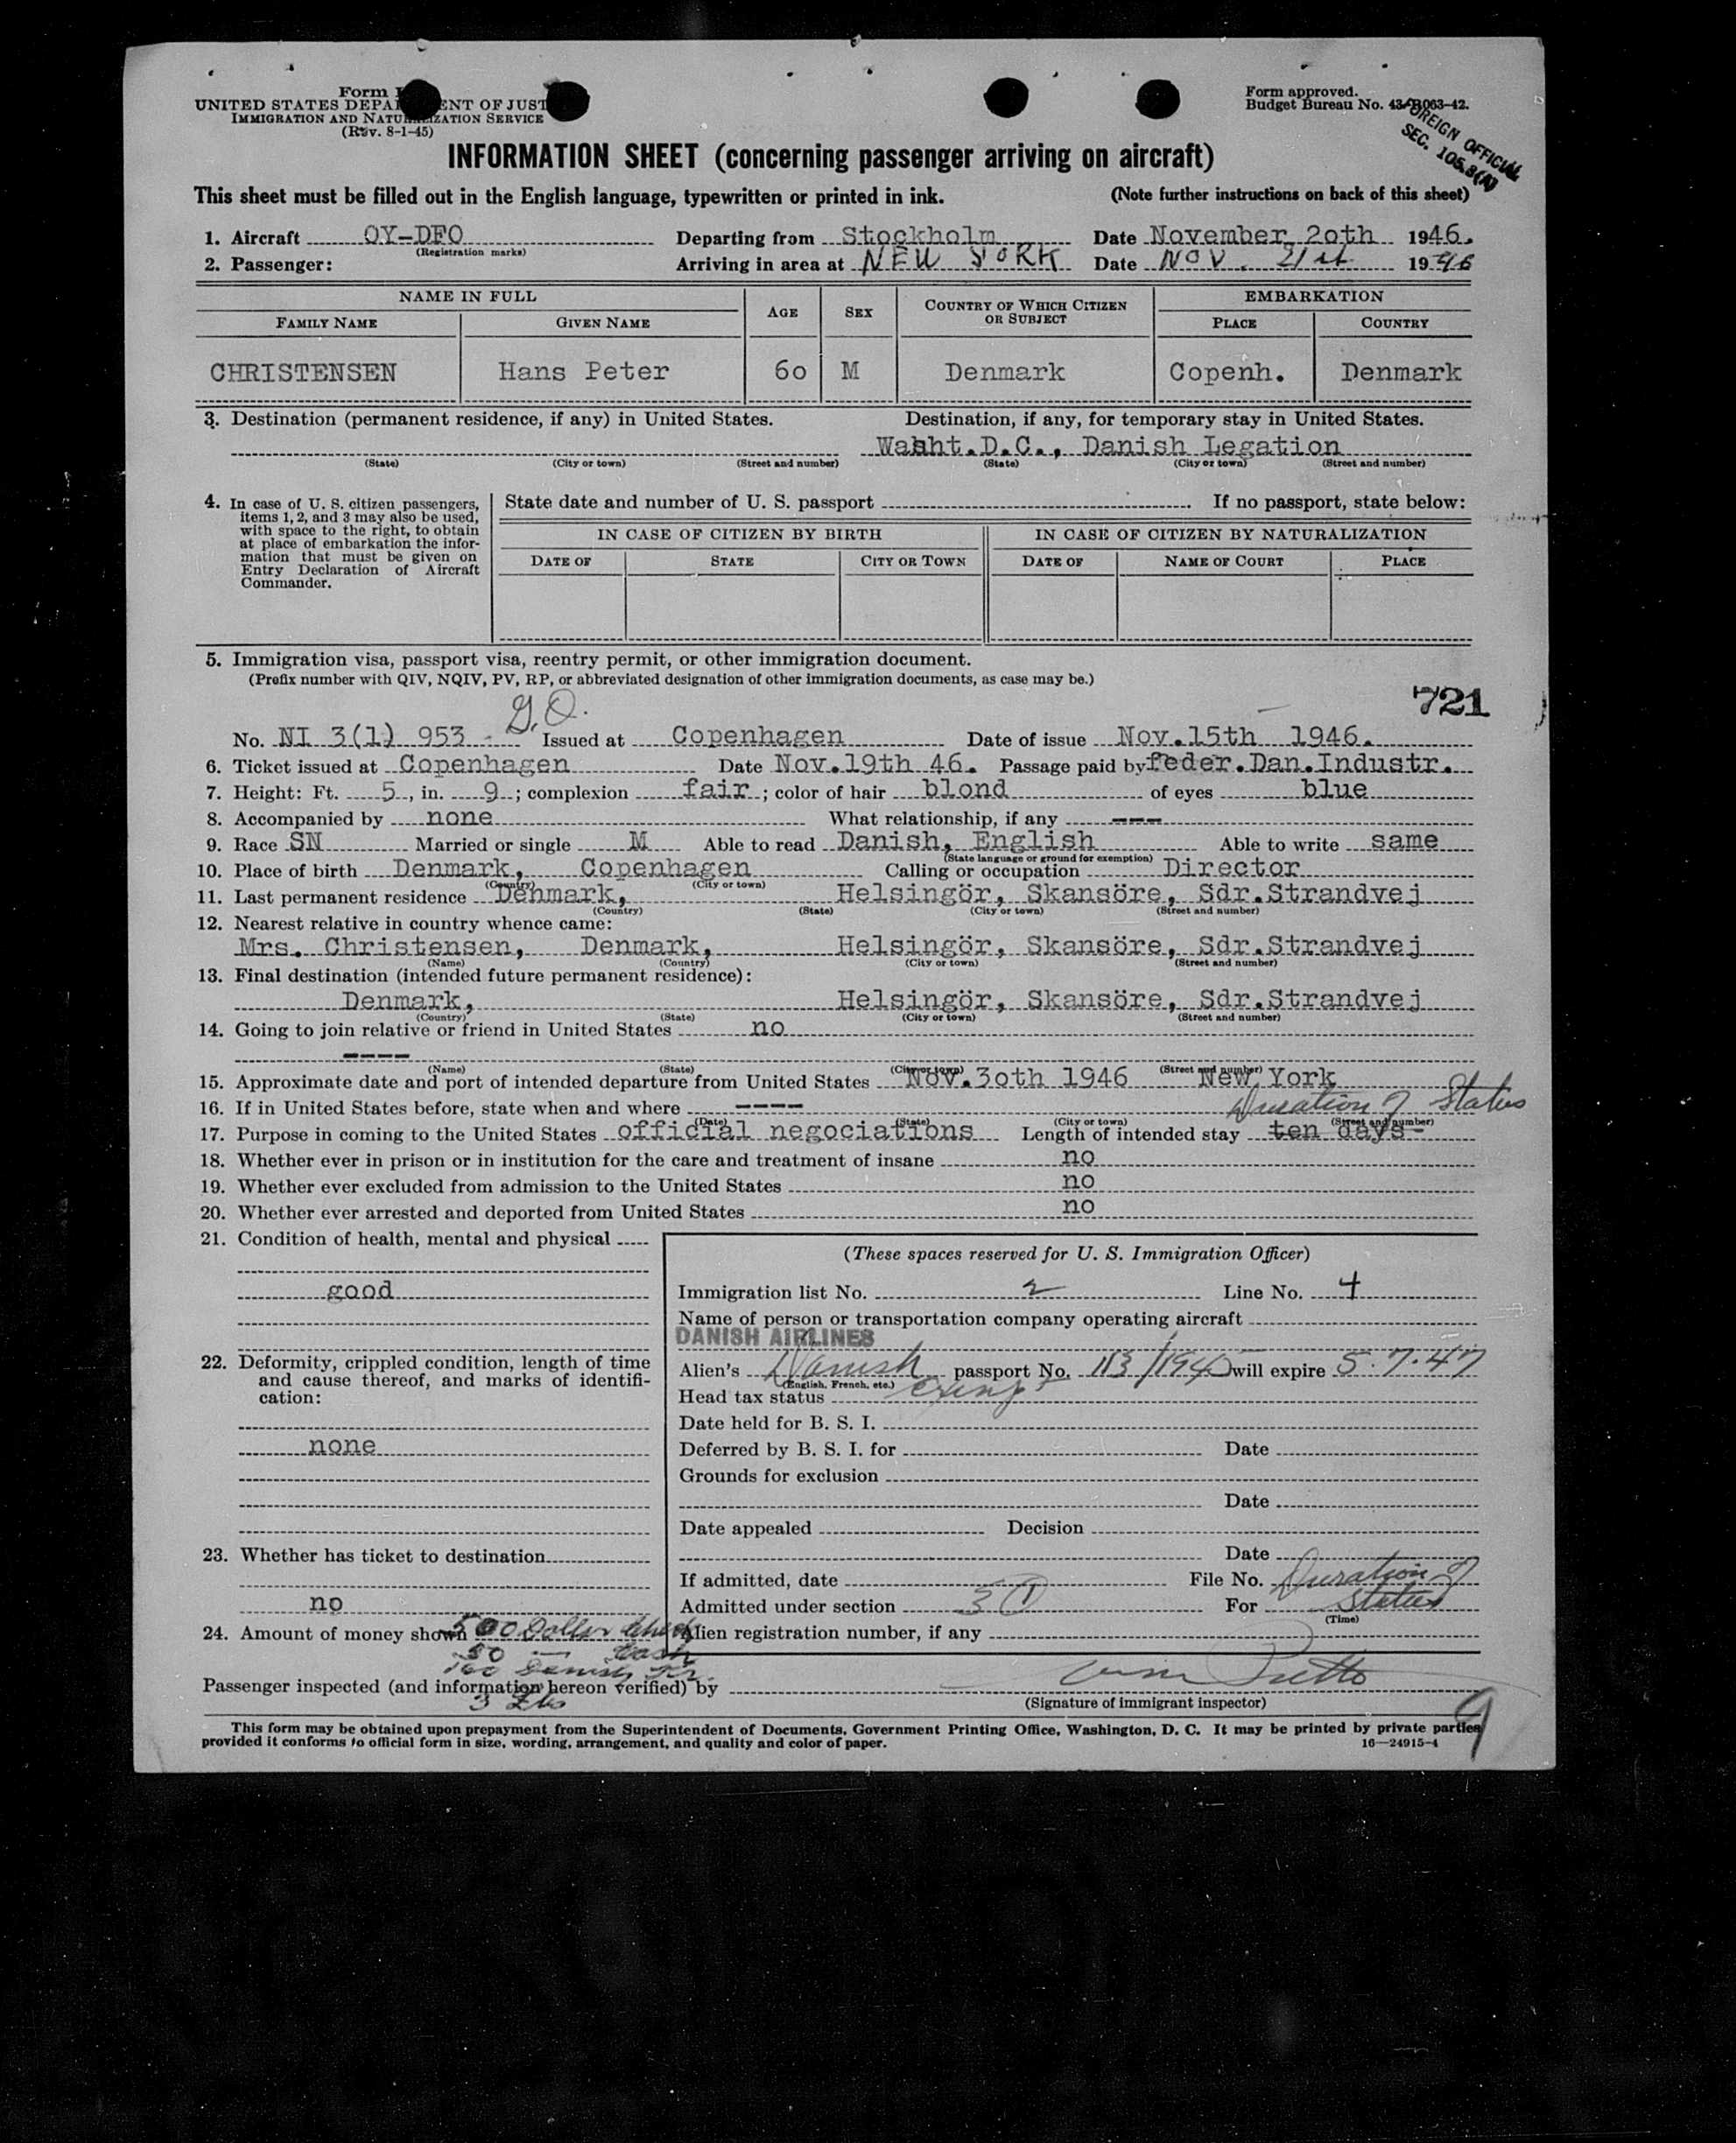 Form
UNITED STATES DEPA ENT OF JUST
IMMIGRATION AND NATU IZATION SERVICE
(Rev. 8-1-45)
Form approved.
Budget Bureau No. 43-R063-42.
FOREIGN OFFICIAL
SEC. 105.3(A)
INFORMATION SHEET (concerning passenger arriving on aircraft)
This sheet must be filled out in the English language, typewritten or printed in ink. (Note further instructions on back of this sheet)
1. Aircraft OY-DFO Departing from Stockholm Date November 2oth 1946.
(Registration marks)
2. Passenger: Arriving in area at NEW YORK Date NOV. 21st 1946
NAME IN FULL AGE SEX COUNTRY OF WHICH CITIZEN OR SUBJECT EMBARKATION
FAMILY NAME GIVEN NAME PLACE COUNTRY
CHRISTENSEN Hans Peter 6o M Denmark Copenh. Denmark
3. Destination (permanent residence, if any) in United States. Destination, if any, for temporary stay in United States.
Washt.D.C., Danish Legation
(State) (City or town) (Street and number) (State) (City or town) (Street and number)
4. In case of U. S. citizen passengers,
items 1, 2, and 3 may also be used,
with space to the right, to obtain
at place of embarkation the infor-
mation that must be given on
Entry Declaration of Aircraft
Commander.
State date and number of U. S. passport If no passport, state below:
IN CASE OF CITIZEN BY BIRTH IN CASE OF CITIZEN BY NATURALIZATION
DATE OF STATE CITY OR TOWN DATE OF NAME OF COURT PLACE
5. Immigration visa, passport visa, reentry permit, or other immigration document.
(Prefix number with QIV, NQIV, PV, RP, or abbreviated designation of other immigration documents, as case may be.)
721
G.O.
No. NI 3(1) 953 - Issued at Copenhagen Date of issue Nov.15th 1946.
6. Ticket issued at Copenhagen Date Nov.19th 46. Passage paid by feder.Dan.Industr.
7. Height: Ft. 5, in. 9; complexion fair; color of hair blond of eyes blue
8. Accompanied by none What relationship, if any ---
9. Race SN Married or single M Able to read Danish, English Able to write same
(State language or ground for exemption)
10. Place of birth Denmark, Copenhagen Calling or occupation Director
(Country) (City or town)
11. Last permanent residence Denmark, Helsingör, Skansöre, Sdr.Strandvej
(Country) (State) (City or town) (Street and number)
12. Nearest relative in country whence came:
Mrs. Christensen, Denmark, Helsingör, Skansöre, Sdr.Strandvej
(Name) (Country) (City or town) (Street and number)
13. Final destination (intended future permanent residence):
Denmark, Helsingör, Skansöre, Sdr.Strandvej
(Country) (State) (City or town) (Street and number)
14. Going to join relative or friend in United States no
----
(Name) (State) (City or town) (Street and number)
15. Approximate date and port of intended departure from United States Nov.3oth 1946 New York
16. If in United States before, state when and where ----
(Date) (State) (City or town) (Street and number)
Duration of Status
17. Purpose in coming to the United States official negociations Length of intended stay ten days-
18. Whether ever in prison or in institution for the care and treatment of insane no
19. Whether ever excluded from admission to the United States no
20. Whether ever arrested and deported from United States no
21. Condition of health, mental and physical
good
22. Deformity, crippled condition, length of time
and cause thereof, and marks of identifi-
cation:
none
23. Whether has ticket to destination
no
24. Amount of money shown 500 Dollar Check
50 — Cash
100 Danish Kr.
3 Lbs
(These spaces reserved for U. S. Immigration Officer)
Immigration list No. 2 Line No. 4
Name of person or transportation company operating aircraft
DANISH AIRLINES
Alien's Danish passport No. 113/1945 will expire 5.7.47
(English, French, etc.)
Head tax status exempt
Date held for B. S. I.
Deferred by B. S. I. for Date
Grounds for exclusion
Date
Date appealed Decision
Date
If admitted, date File No. Duration of
Admitted under section 3(1) For Status
(Time)
Alien registration number, if any
Passenger inspected (and information hereon verified) by
(Signature of immigrant inspector)
9
This form may be obtained upon prepayment from the Superintendent of Documents, Government Printing Office, Washington, D. C. It may be printed by private parties
provided it conforms to official form in size, wording, arrangement, and quality and color of paper. 16—24915-4